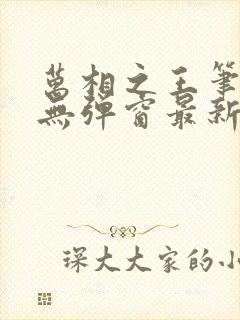 萬相之王筆
無彈窗最新
琛大大家的小